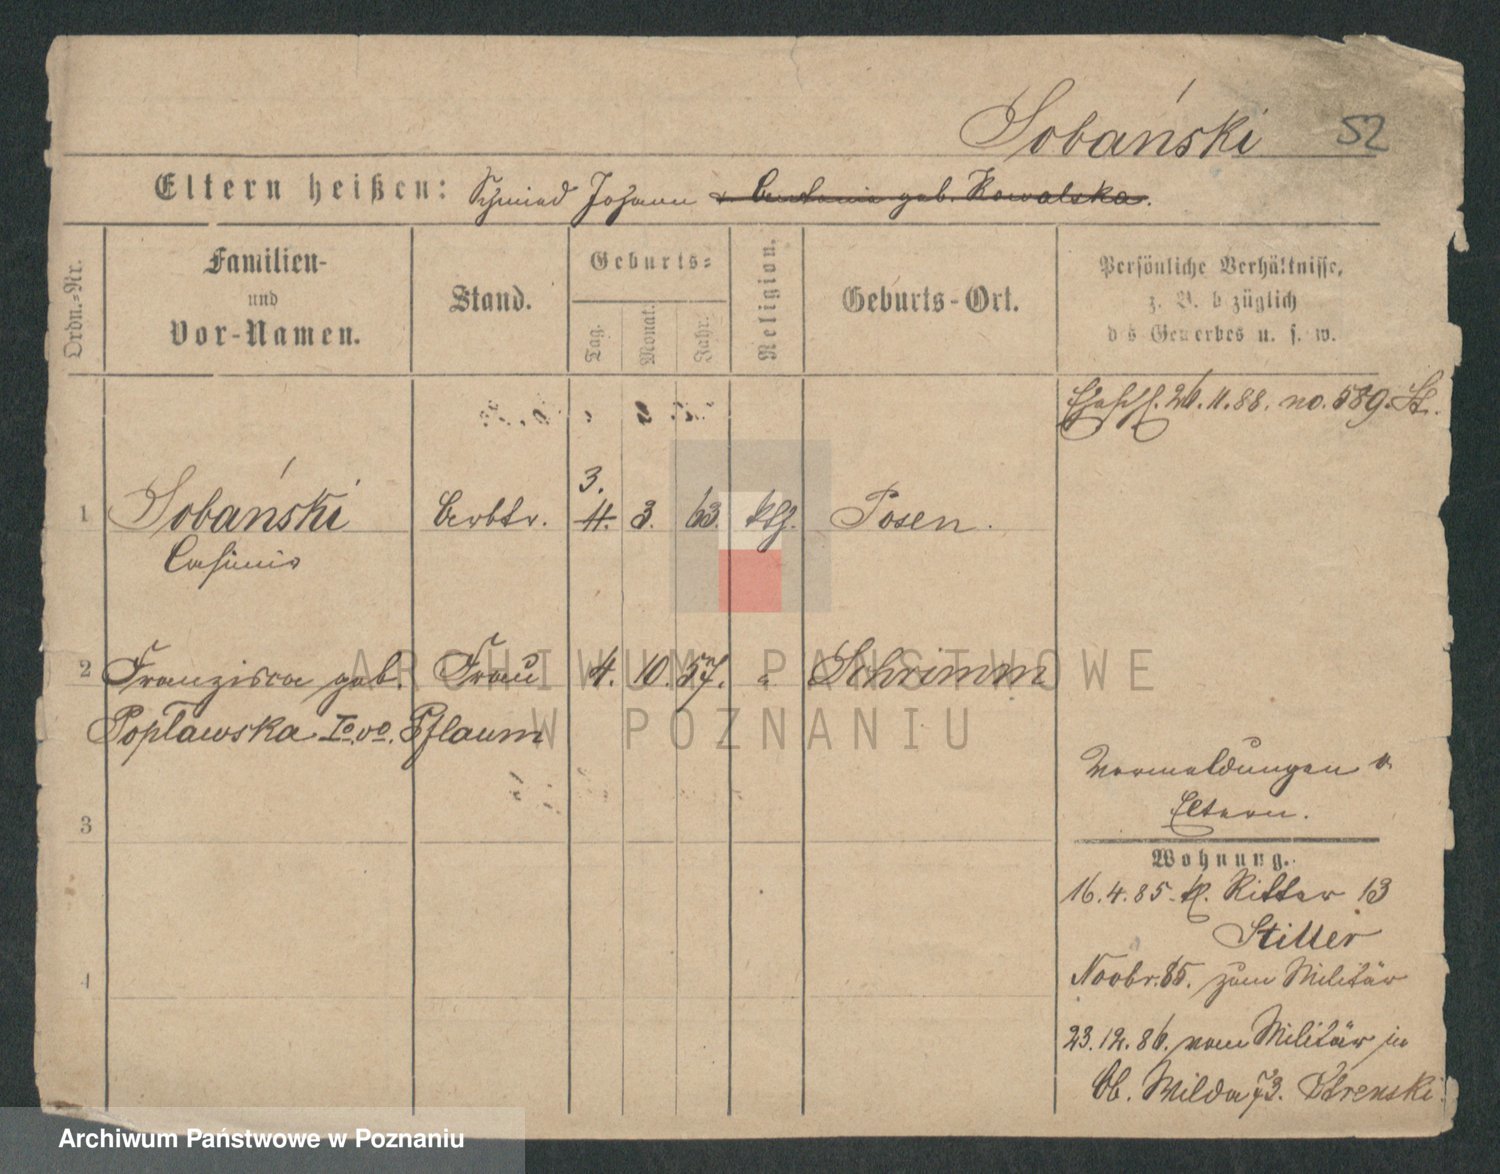 Sobański 52
Eltern heißen: Schmied Johann u. Antonie geb. Kowalska.
Ordn.-Nr.
Familien-
und
Vor-Namen.
Stand.
Geburts-
Tag.
Monat.
Jahr.
Religion.
Geburts-Ort.
Persönliche Verhältnisse,
z. B. bezüglich
des Gewerbes u. s. w.
26.11.88. no. 589. St.
3.
1 Sobański Arbtr. 4. 3. 63. kth. Posen.
Casimir
2 Franzisca geb. Frau 4. 10. 57. " Schrimm
Popławska Io vo. Pflaum
Vermeldungen v.
Eltern.
3
Wohnung.
16.4.85. kl. Ritter 13
Stiller
4
Novbr. 85. zum Militär
23.12.86. vom Militär in
Ob. Wilda 73.
ARCHIWUM PAŃSTWOWE
W POZNANIU
Archiwum Państwowe w Poznaniu